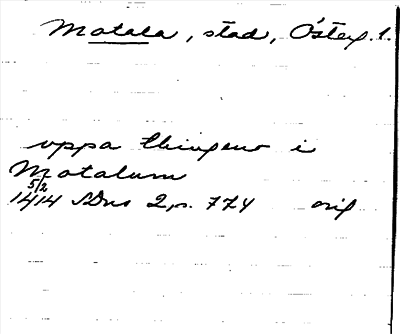 Motala, stad, Österg. l.
uppa thingeno i
Motalum
5/2
1414 SDns 2, s. 774 orig